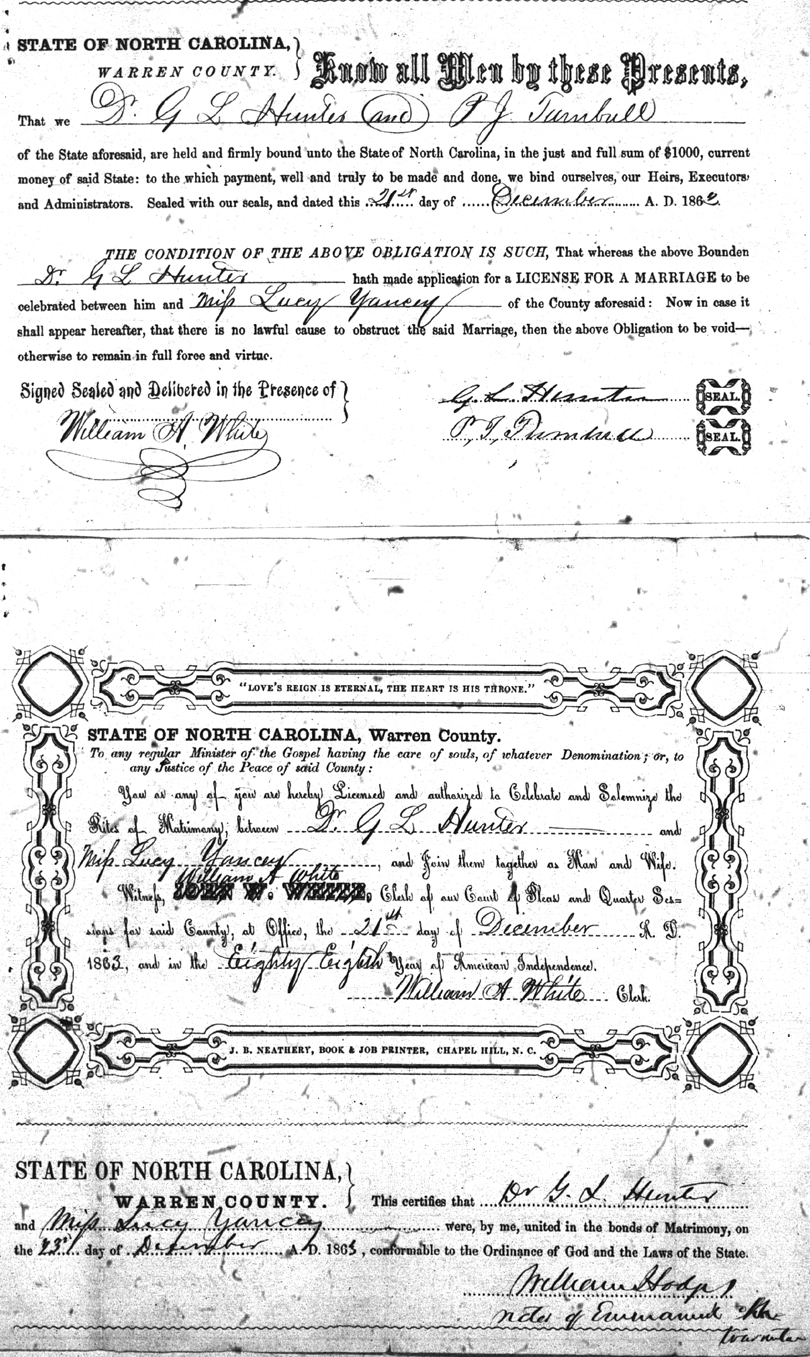 STATE OF NORTH CAROLINA,
WARREN COUNTY.
Know all Men by these Presents,
That we Dr. G L Hunter and P J Turnbull
of the State aforesaid, are held and firmly bound unto the State of North Carolina, in the just and full sum of $1000, current
money of said State: to the which payment, well and truly to be made and done, we bind ourselves, our Heirs, Executors
and Administrators. Sealed with our seals, and dated this 21st day of December A. D. 1863.
THE CONDITION OF THE ABOVE OBLIGATION IS SUCH, That whereas the above Bounden
Dr. G L Hunter hath made application for a LICENSE FOR A MARRIAGE to be
celebrated between him and Miss Lucy Yancey of the County aforesaid: Now in case it
shall appear hereafter, that there is no lawful cause to obstruct the said Marriage, then the above Obligation to be void—
otherwise to remain in full force and virtue.
Signed Sealed and Delivered in the Presence of
G. L. Hunter SEAL.
William A White
P. J. Turnbull SEAL.
"LOVE'S REIGN IS ETERNAL, THE HEART IS HIS THRONE."
STATE OF NORTH CAROLINA, Warren County.
To any regular Minister of the Gospel having the care of souls, of whatever Denomination; or, to
any Justice of the Peace of said County:
You or any of you are hereby Licensed and authorized to Celebrate and Solemnize the
Rites of Matrimony, between Dr. G L Hunter and
Miss Lucy Yancey, and Join them together as Man and Wife.
William A White
Witness, JOHN W. WHITE, Clerk of our Court of Pleas and Quarter Ses-
sions for said County, at Office, the 21st day of December A. D.
1863, and in the Eighty Eighth Year of American Independence.
William A White Clerk.
J. B. NEATHERY, BOOK & JOB PRINTER, CHAPEL HILL, N. C.
STATE OF NORTH CAROLINA,
WARREN COUNTY.
This certifies that Dr G. L. Hunter
and Miss Lucy Yancey were, by me, united in the bonds of Matrimony, on
the 23d day of December A. D. 1863, conformable to the Ordinance of God and the Laws of the State.
William Hodges
of Emmanuel